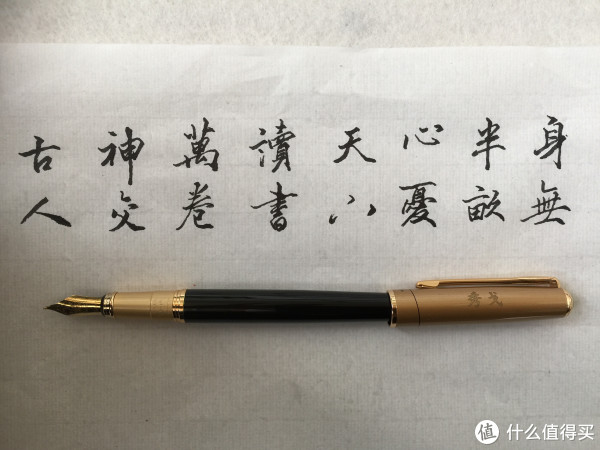 身無
半畝
心憂
天下
讀書
萬卷
神交
古人
值 什么值得买